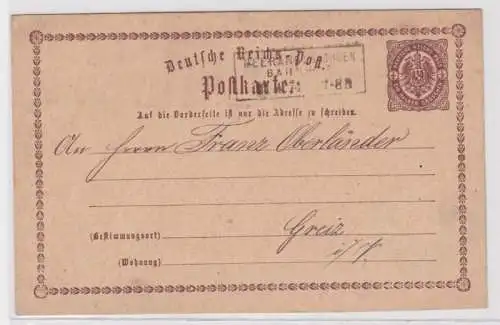 Deutsche Reichs-Post.
Postkarte.
Auf die Vorderseite ist nur die Adresse zu schreiben.
An Herrn Franz Oberländer
Greiz
(Bestimmungsort)
i/V.
(Wohnung)